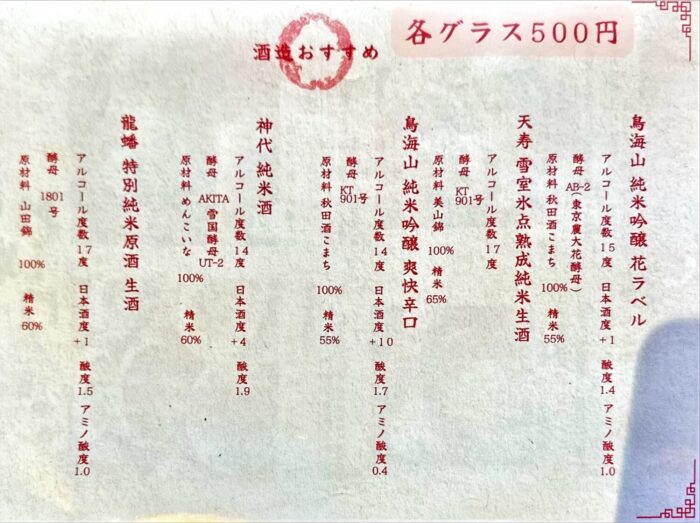 各グラス500円
酒造おすすめ
鳥海山 純米吟醸 花ラベル
アルコール度数15度 日本酒度+1 酸度1.4 アミノ酸度1.0
酵母 AB-2(東京農大花酵母)
原材料 秋田酒こまち 100% 精米55%
天寿 雪室氷点熟成純米生酒
アルコール度数17度
酵母 KT901号
原材料 美山錦 100% 精米65%
鳥海山 純米吟醸 爽快辛口
アルコール度数14度 日本酒度+10 酸度1.7 アミノ酸度0.4
酵母 KT901号
原材料 秋田酒こまち 100% 精米55%
神代 純米酒
アルコール度数14度 日本酒度+4 酸度1.9
酵母 AKITA 雪国酵母UT-2
原材料 めんこいな 100% 精米60%
龍蟠 特別純米原酒 生酒
アルコール度数17度 日本酒度+1 酸度1.5 アミノ酸度1.0
酵母 1801号
原材料 山田錦 100% 精米60%